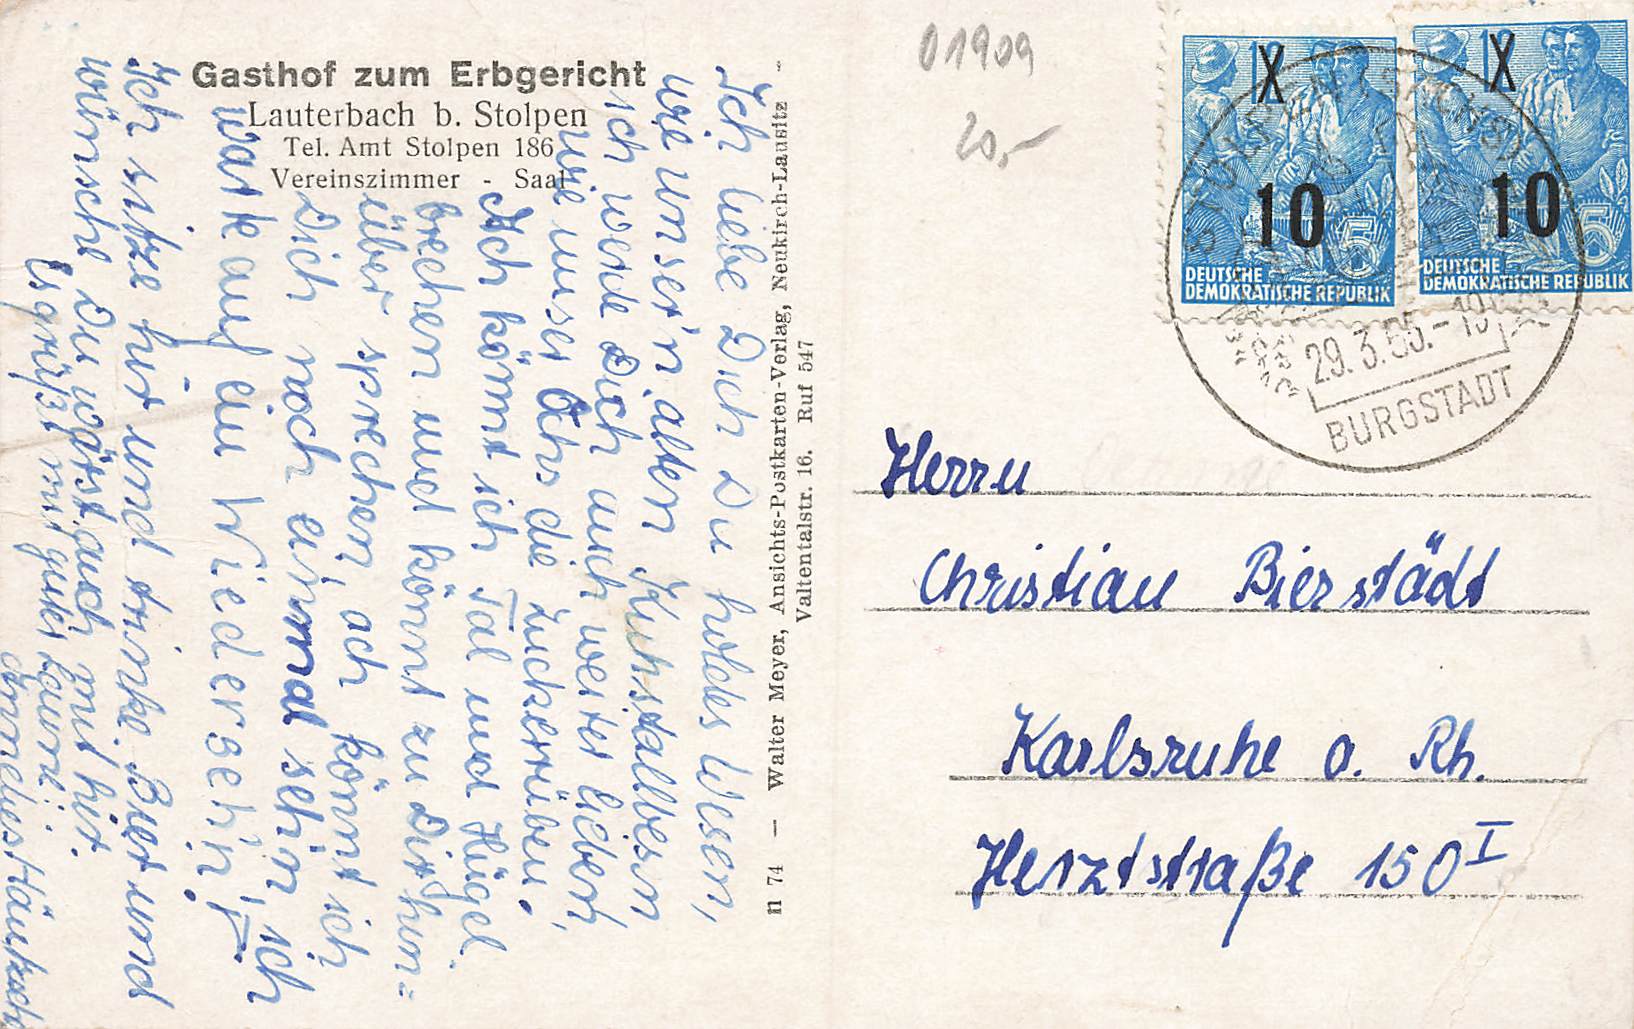 Gasthof zum Erbgericht
Lauterbach b. Stolpen
Tel. Amt Stolpen 186
Vereinszimmer - Saal
Ich liebe Dich Du holdes Wesen,
wie unser'n alten Kuhstallbesen
ich werde Dich auch weiter lieben,
wie unser Ochs die Zuckerrüben.
Ach könnt ich Tal und Hügel
brechen und könnt zu Dir hin=
über sprechen, ach könnt ich
Dich noch einmal seh'n ich
warte auf ein Wiederseh'n!
Ich sitze hir und trinke Bier und
wünsche Du wärst auch mit hir.
Es grüßt mit guter Laune
n 74 — Walter Meyer, Ansichts-Postkarten-Verlag, Neukirch-Lausitz -
Valtentalstr. 16. Ruf 547
01909
20,-
10
DEUTSCHE
DEMOKRATISCHE REPUBLIK
5
10
DEUTSCHE
DEMOKRATISCHE REPUBLIK
5
STOLPEN (SACHS)
29.3.55.-19
BURGSTADT
Herrn
Christian Bierstädt
Karlsruhe a. Rh.
Herztstraße 150 I